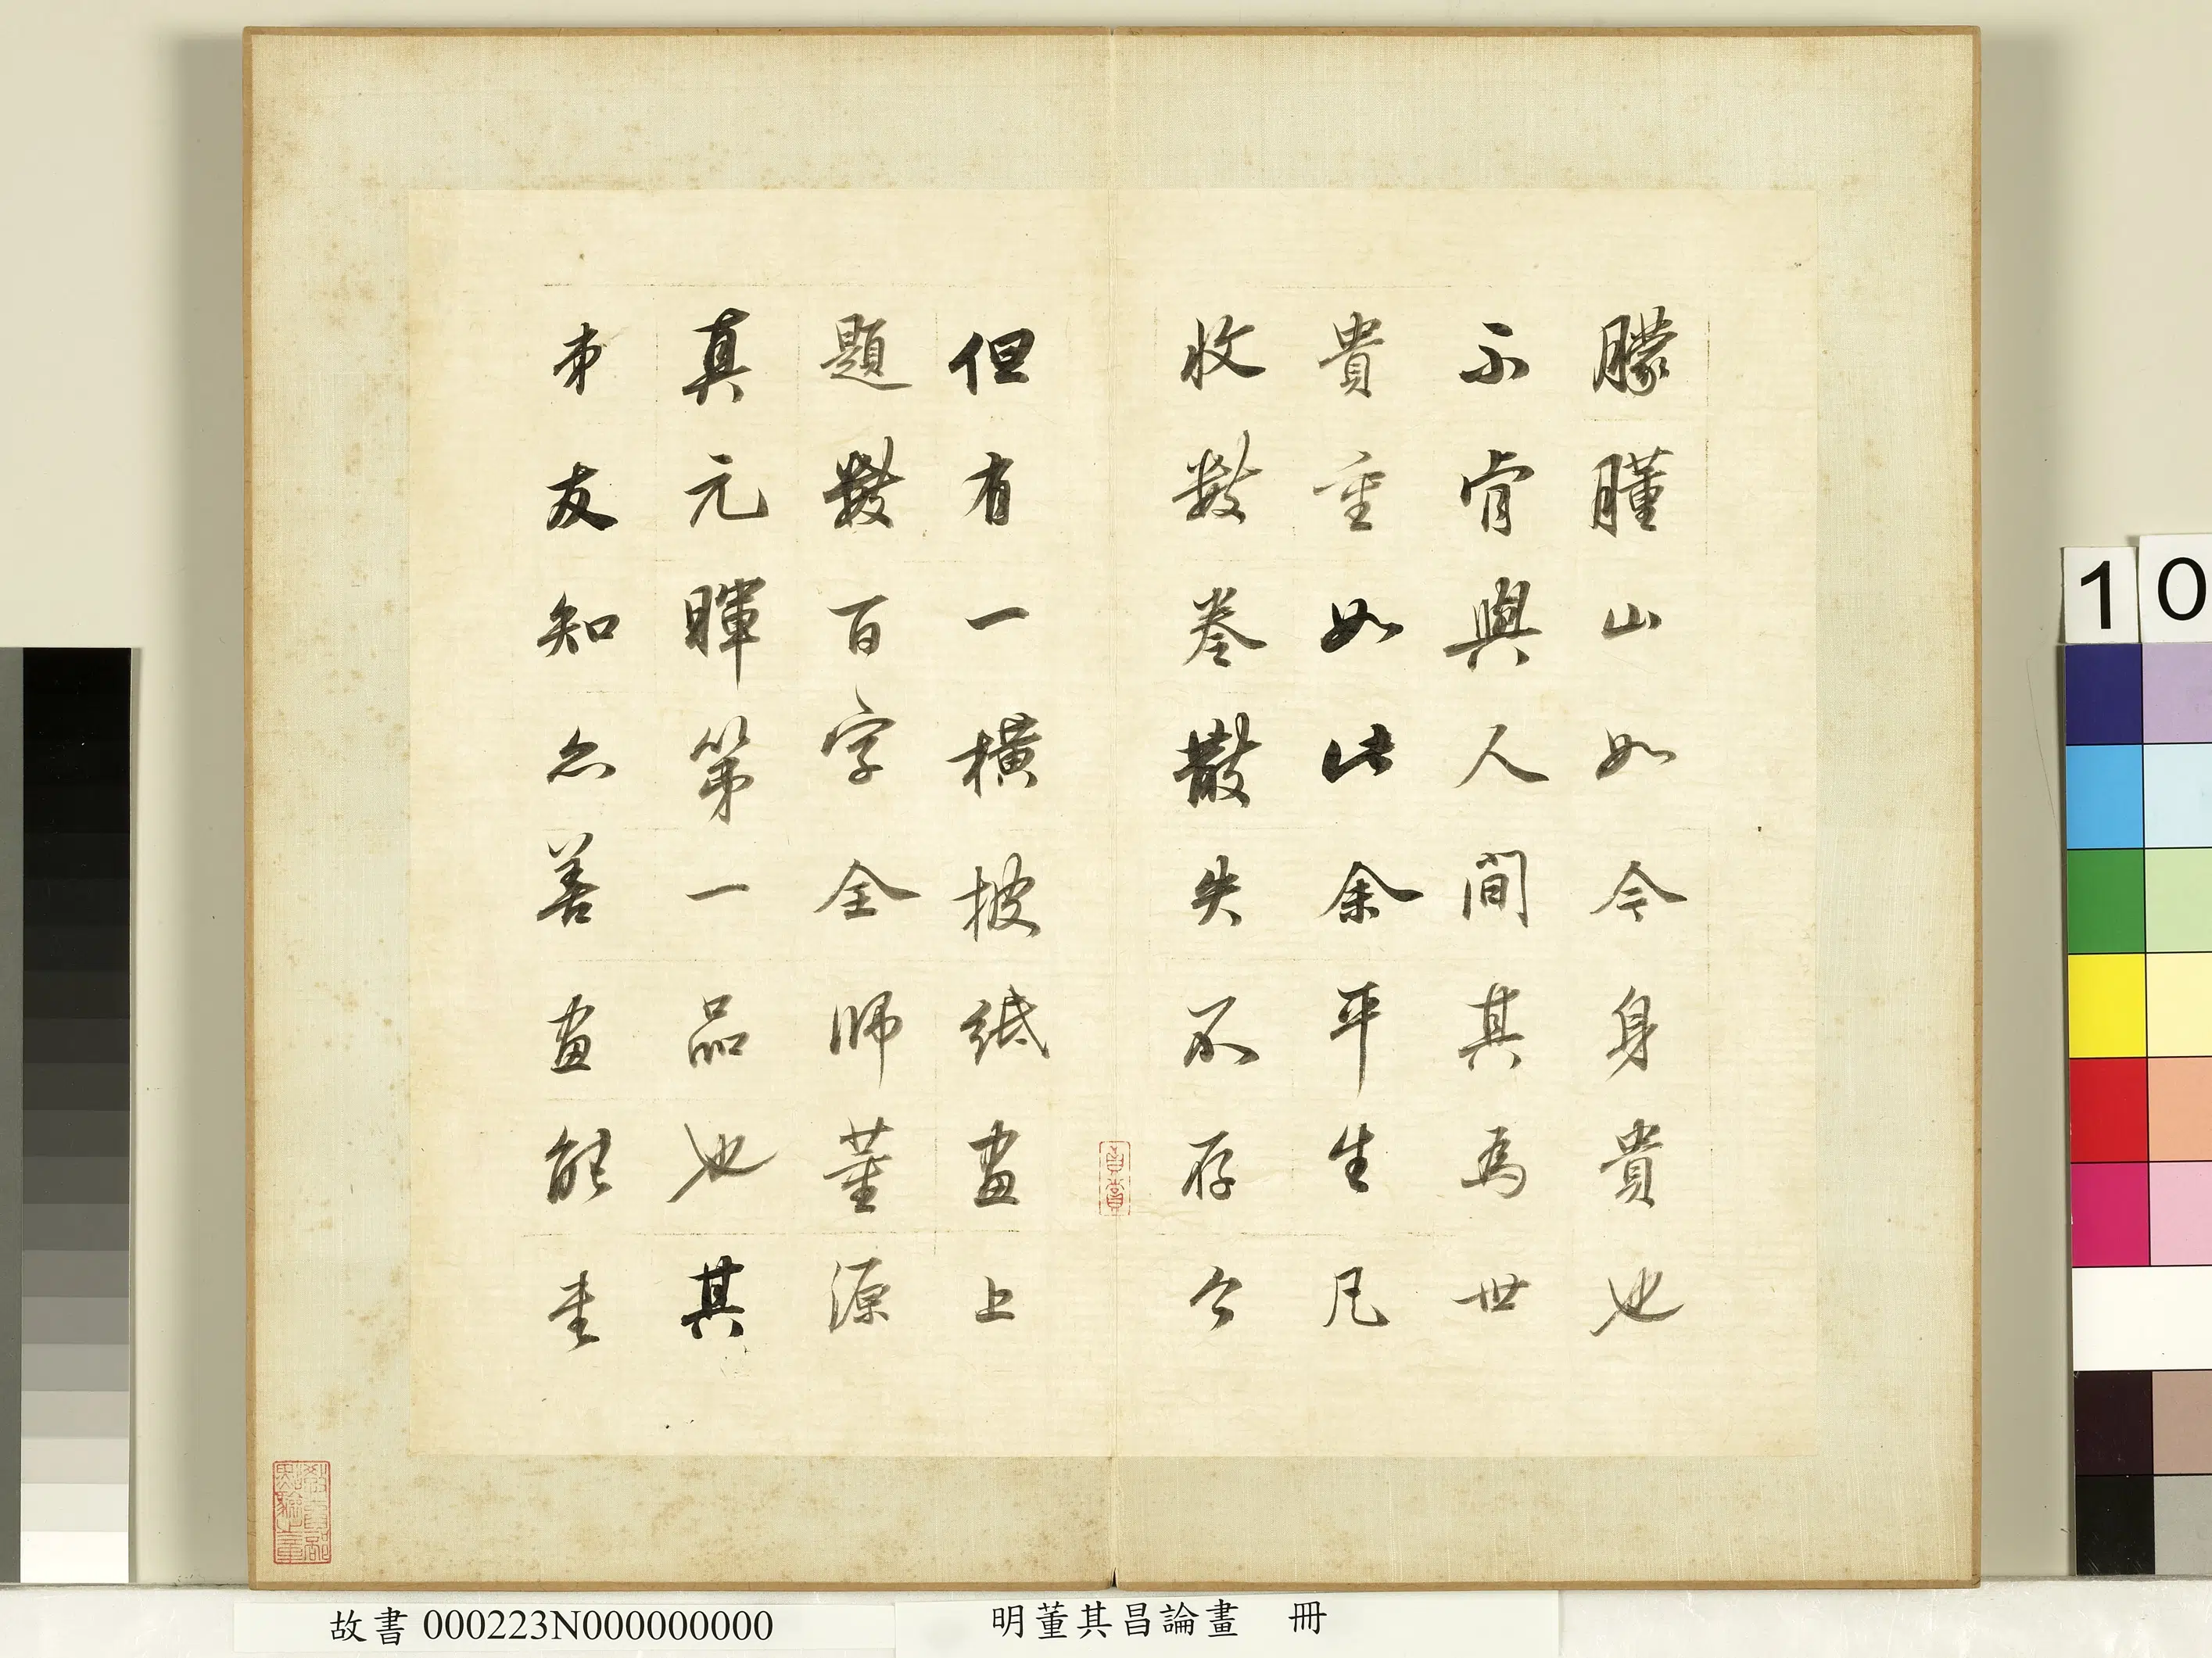 朦朣山如今身貴也
不肯與人間其為世
貴重如此余平生凡
收數卷散失不存今
但有一橫披紙畫上
題數百字全師董源
真元暉第一品也其
弟友知亦善畫能
真賞
故書000223N000000000
明董其昌論畫 冊
10